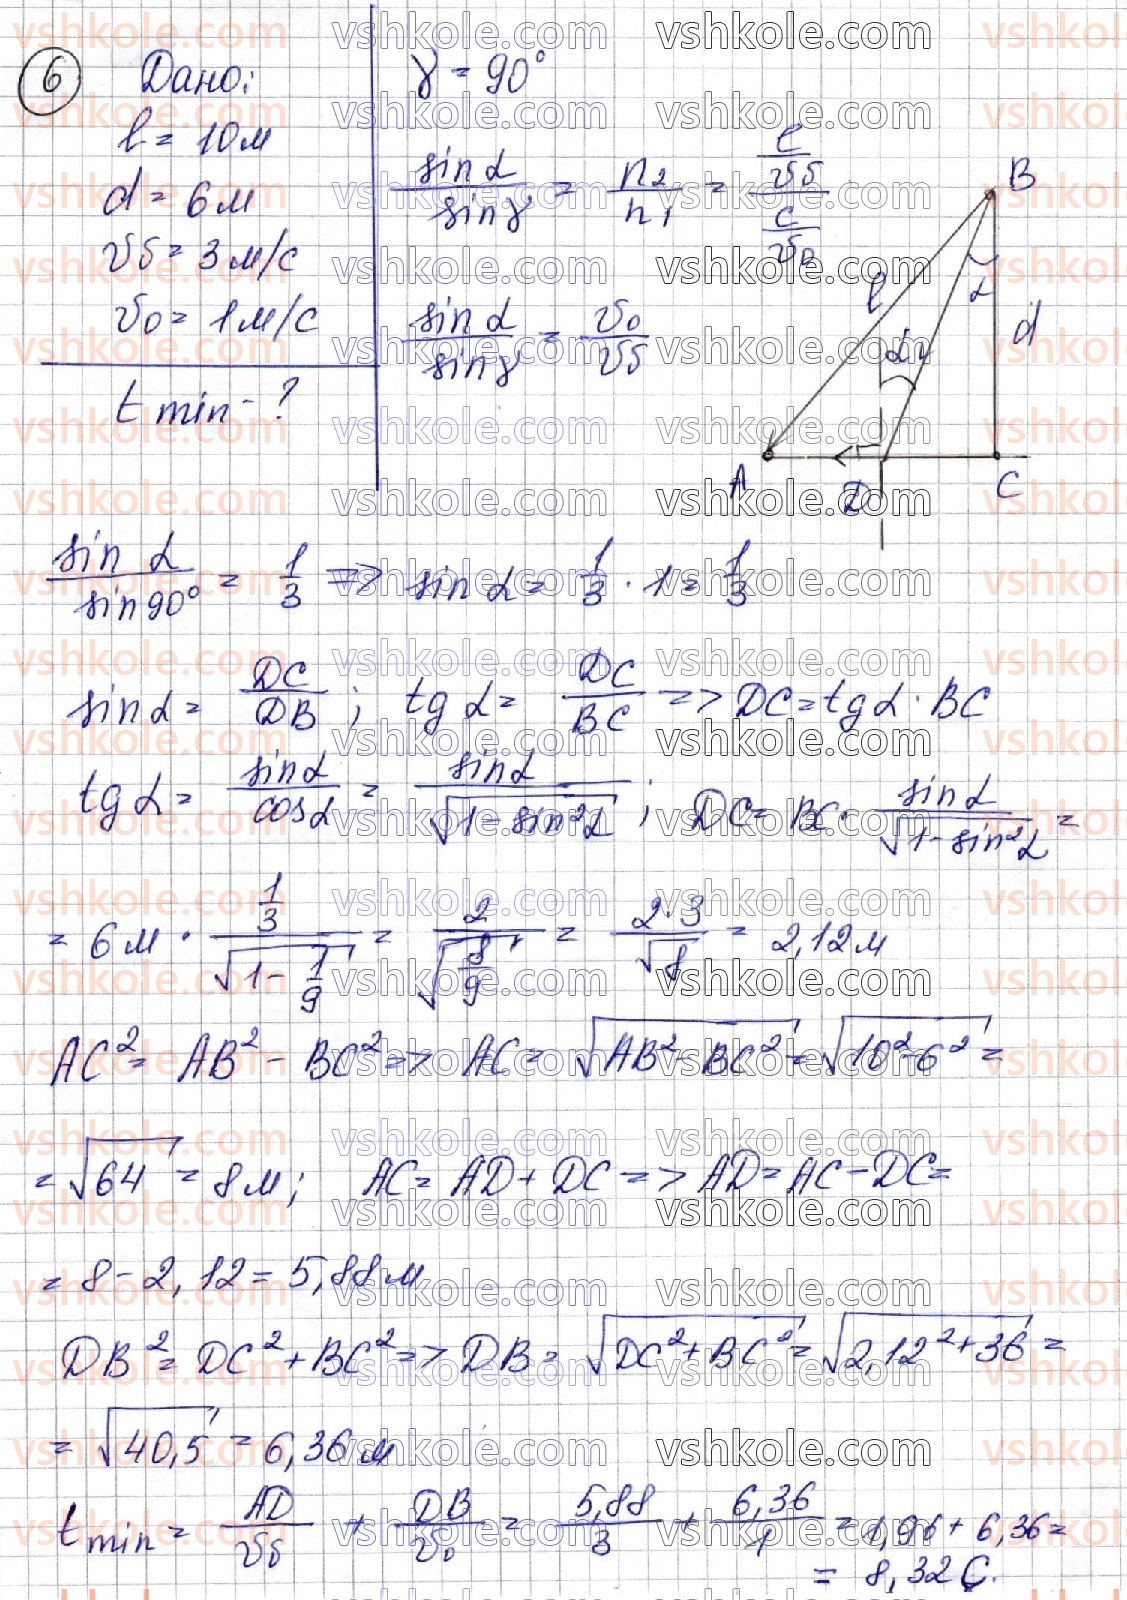 6 Дано:
l = 10 м
d = 6 м
vб = 3 м/с
v0 = 1 м/с
t min - ?
γ = 90°
sin α / sin γ = n2 / n1 = (c/vб) / (c/v0)
sin α / sin γ = v0 / vб
B
l
α
d
α
γ
A
D
C
sin α / sin 90° = 1/3 => sin α = 1/3 · 1 = 1/3
sin α = DC/DB ; tg α = DC/BC => DC = tg α · BC
tg α = sin α / cos α = sin α / √(1 - sin² α) ; DC = BC · sin α / √(1 - sin² α) =
= 6 м · (1/3) / √(1 - 1/9) = 2 / √(8/9) = 2·3 / √8 = 2,12 м
AC² = AB² - BC² => AC = √(AB² - BC²) = √(10² - 6²) =
= √64 = 8 м ; AC = AD + DC => AD = AC - DC =
= 8 - 2,12 = 5,88 м
DB² = DC² + BC² => DB = √(DC² + BC²) = √(2,12² + 36) =
= √40,5 = 6,36 м
t min = AD/vб + DB/v0 = 5,88/3 + 6,36/1 = 1,96 + 6,36 =
= 8,32 с.
vshkole.com